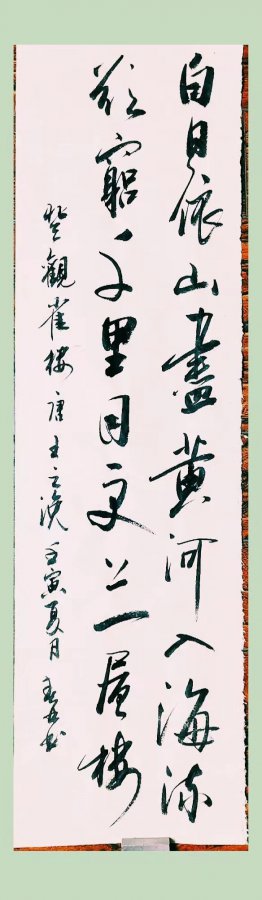 白日依山盡黄河入海流
欲窮千里目更上一層楼
登觀雀楼唐王之涣壬寅夏月书